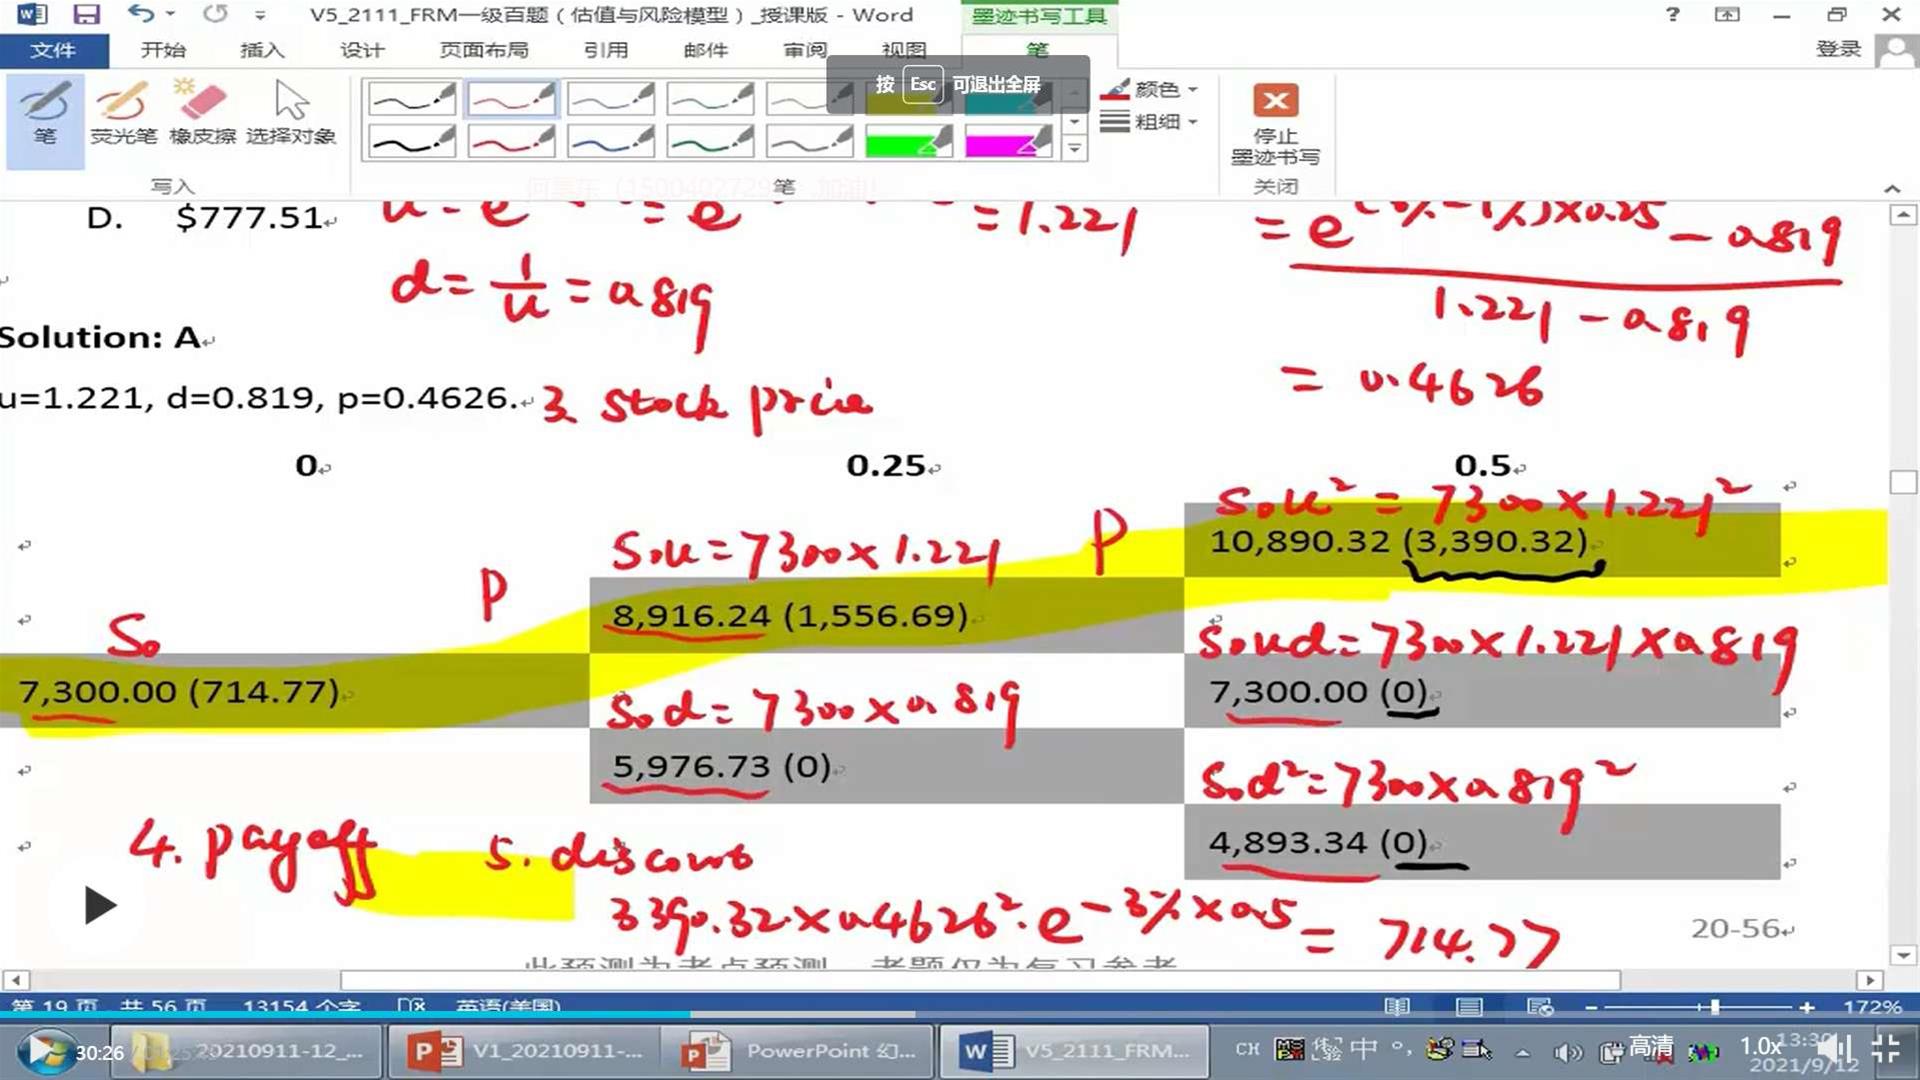 V5_2111_FRM一级百题（估值与风险模型）_授课版 - Word
墨迹书写工具
文件 开始 插入 设计 页面布局 引用 邮件 审阅 视图 笔 登录
按 Esc 可退出全屏
笔 荧光笔 橡皮擦 选择对象 颜色 粗细 停止 墨迹书写
写入 笔 关闭
D. $777.51
= 1.221
- 0.819
d = 1/u = 0.819
1.221 - 0.819
Solution: A
= 0.4626
u=1.221, d=0.819, p=0.4626.
3. stock price
0 0.25 0.5
S0u² = 7300 × 1.221²
10,890.32 (3,390.32)
P
S0u = 7300 × 1.221
P
8,916.24 (1,556.69)
S0
S0ud = 7300 × 1.221 × 0.819
7,300.00 (714.77)
7,300.00 (0)
S0d = 7300 × 0.819
5,976.73 (0)
S0d² = 7300 × 0.819²
4,893.34 (0)
4. payoff
5. discount
3390.32 × 0.4626² · e^-3% × 0.5 = 714.77
20-56
此预测为考点预测，考题仅为复习参考
第 19 页，共 56 页 13154 个字 英语(美国) 172%
30:26 20210911-12_... V1_20210911-... PowerPoint 幻... V5_2111_FRM... CH 中 高清 1.0x
2021/9/12